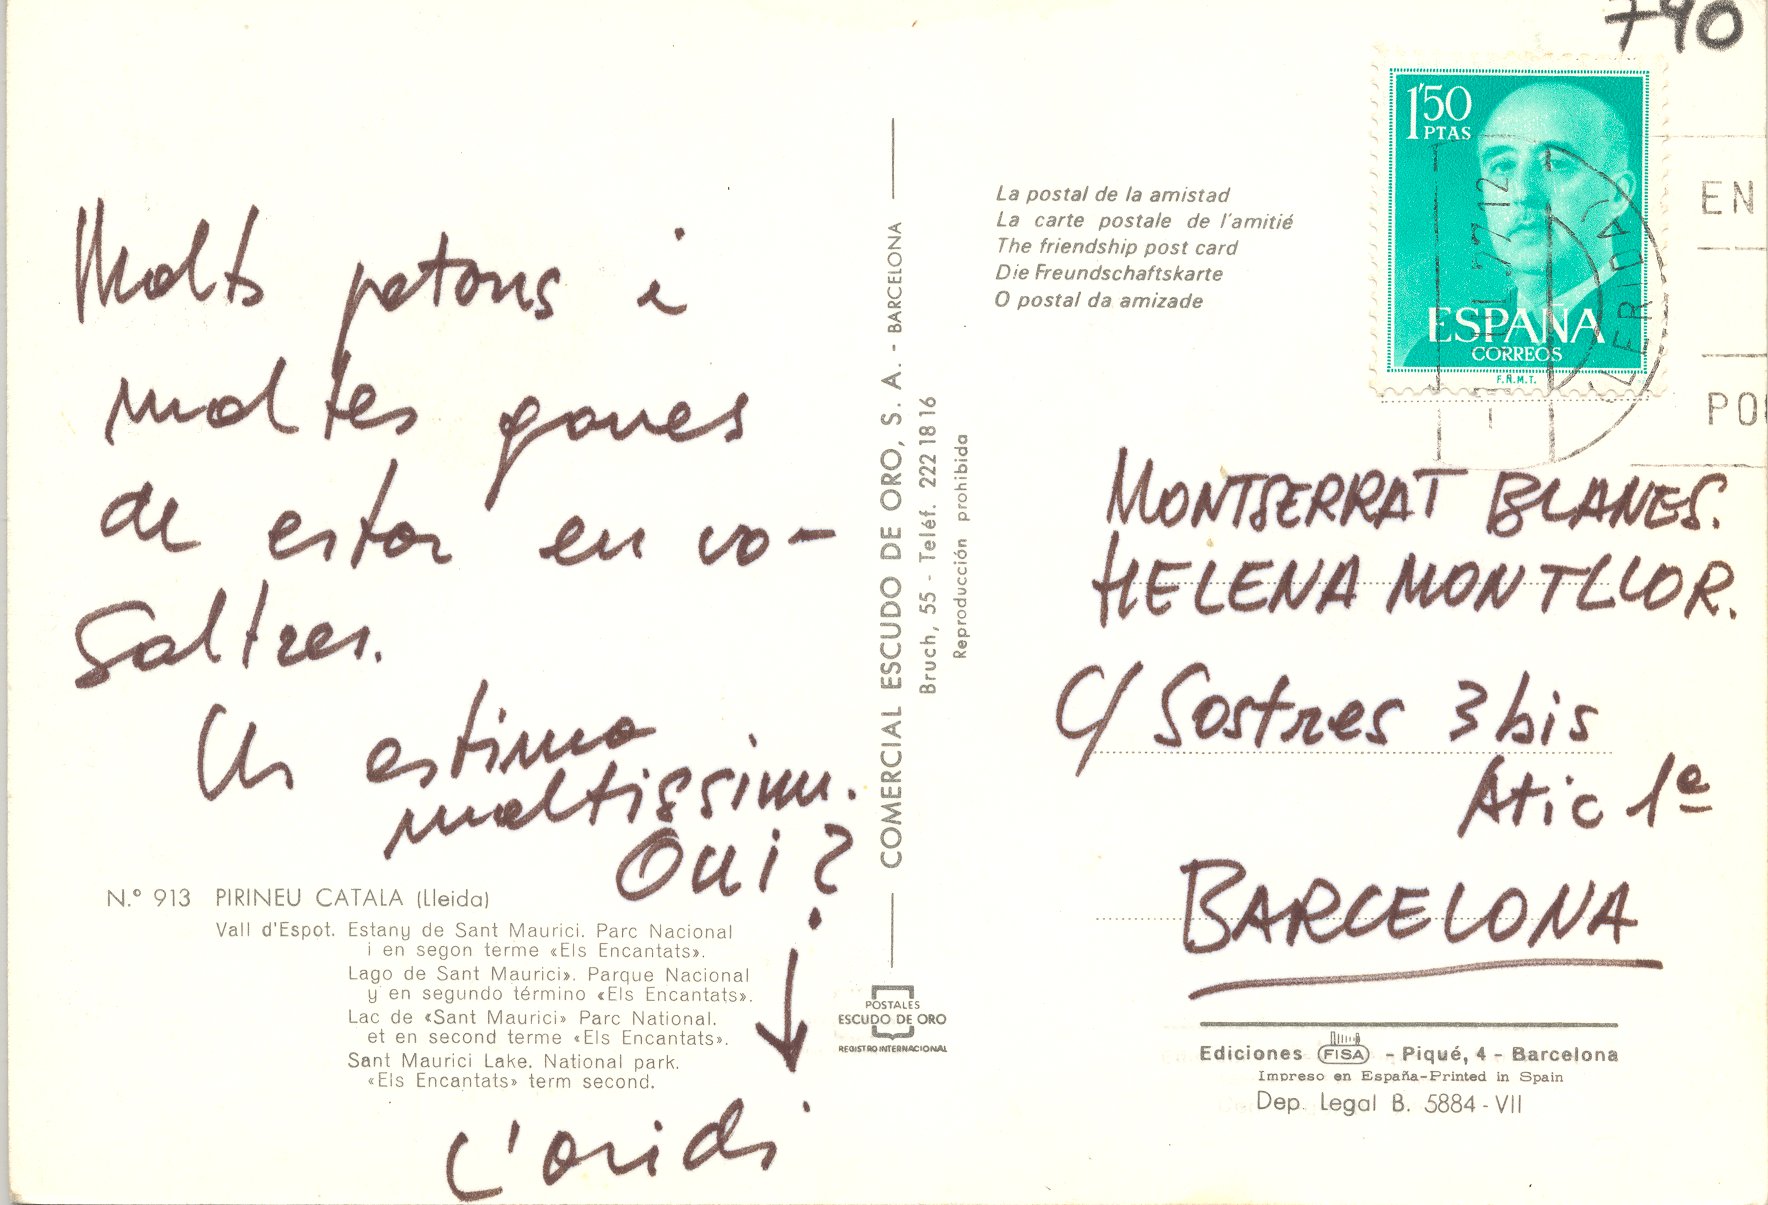 Molts petons i
moltes ganes
de estar en vo-
saltres.
Us estimo
moltissim.
Qui?
N.° 913 PIRINEU CATALA (Lleida)
Vall d'Espot. Estany de Sant Maurici. Parc Nacional
i en segon terme «Els Encantats».
Lago de Sant Maurici». Parque Nacional
y en segundo término «Els Encantats».
Lac de «Sant Maurici» Parc National.
et en second terme «Els Encantats».
Sant Maurici Lake. National park.
«Els Encantats» term second.
COMERCIAL ESCUDO DE ORO, S. A. - BARCELONA
Bruch, 55 - Teléf. 222 18 16
Reproducción prohibida
POSTALES
ESCUDO DE ORO
REGISTRO INTERNACIONAL
790
1'50
PTAS
ESPAÑA
CORREOS
F.N.M.T.
LERIDA
EN
La postal de la amistad
La carte postale de l'amitié
The friendship post card
Die Freundschaftskarte
O postal da amizade
MONTSERRAT BLANES.
HELENA MONTLLOR.
C/ Sostres 3 bis
Atic 1ª
BARCELONA
Ediciones FISA - Piqué, 4 - Barcelona
Impreso en España-Printed in Spain
Dep. Legal B. 5884-VII